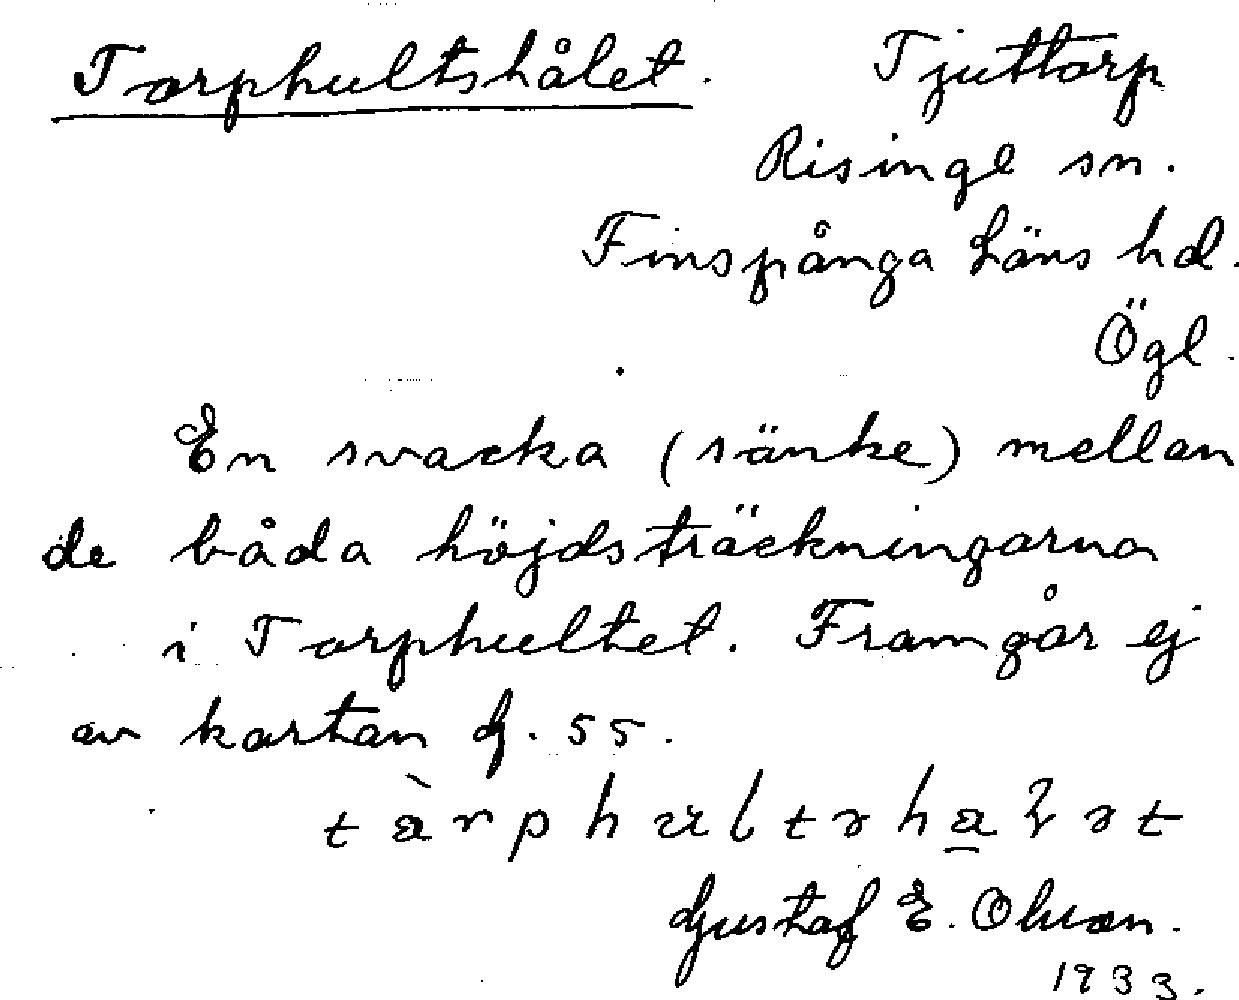 Torphultshålet. Tjuttorp
Risinge sn.
Finspånga Läns hd.
Ögl.
En svacka (sänke) mellan
de båda höjdsträckningarna
i Torphultet. Framgår ej
av kartan g. 55.
Gustaf E. Olson.
1933.